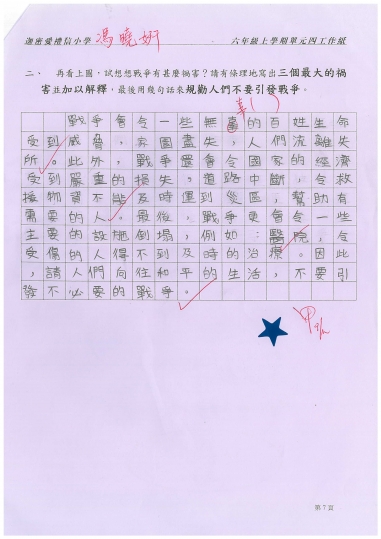 迦密愛禮信小學 馮曉妍 六年級上學期單元四工作紙
二、 再看上圖，試想想戰爭有甚麼禍害？請有條理地寫出三個最大的禍
害並加以解釋，最後用幾句話來規勸人們不要引發戰爭。
辜( )
戰爭會令一些無辜的百姓生命
受到威脅，家園盡失，人們流離失
所。此外，戰爭還會令國家的經濟
受到嚴重的損失。道路中斷，令救
援物資不能及時運到災區，幫助有
需要的人。最後，戰爭更會令一些
主要的設施倒塌，例如：醫院，令
受傷的人得不到及時的治療。因此
，請人們向往和平的生活，不要引
發不必要的戰爭。
甲
第 7 頁